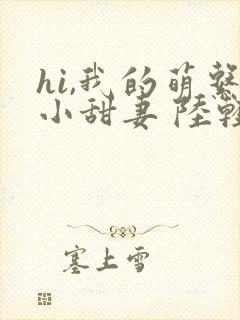 hi,我的萌系
小甜妻 陸
塞上雪